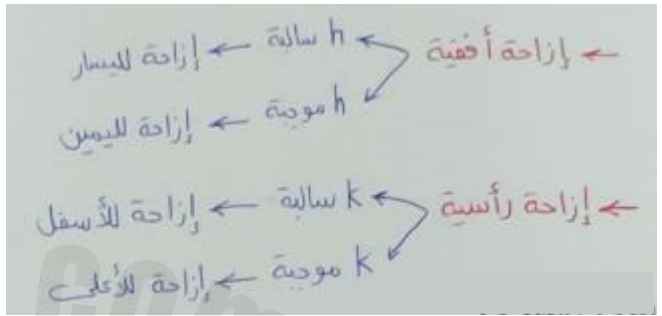 ← إزاحة أفقية
h سالبة ← إزاحة لليسار
h موجبة ← إزاحة لليمين
← إزاحة رأسية
k سالبة ← إزاحة للأسفل
k موجبة ← إزاحة للأعلى
com